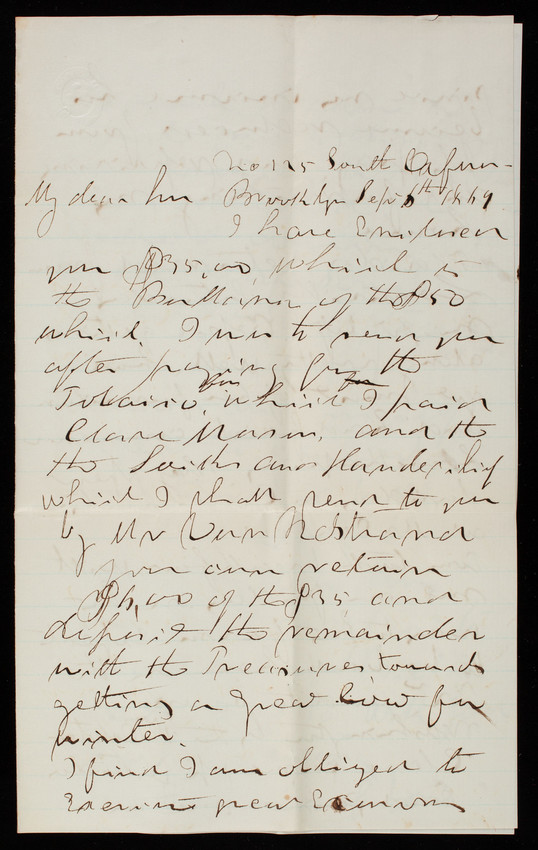 No 125 South Oxford
My dear Son Brooklyn Sept 6th 1869
I have Enclosed
you $35,00, which is
the Ballance of the $50
which, I was to send you
after paying for the
Tobacco, which I paid
Clara Mason, and the
the Socks and Handechif
which I shall send to you
by Mr Van Nostrand
you can retain
of the $35, and
deposit the remainder
with the Treasurer towards
getting a great Coat for
winter.
I find I am obliged to
Exercise great Economy